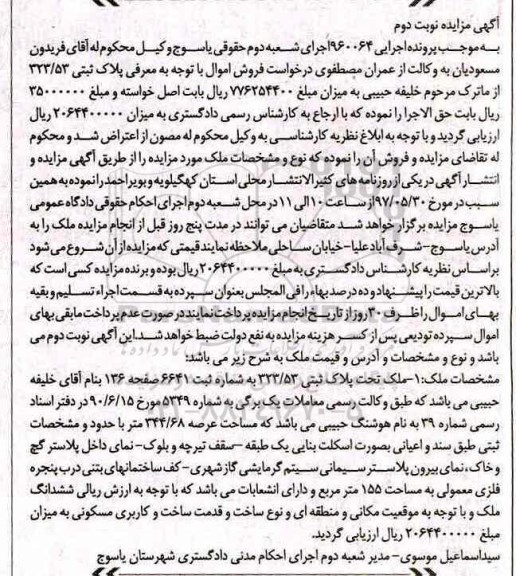 آگهی مزایده نوبت دوم
به موجب پرونده اجرایی ۹۶۰۰۶۴ اجرای شعبه دوم حقوقی یاسوج وکیل محکوم له آقای فریدون
مسعودیان به وکالت از عمران مصطفوی درخواست فروش اموال با توجه به معرفی پلاک ثبتی ۳۲۳/۵۳
از ماترک مرحوم خلیفه حبیبی به میزان مبلغ ۷۷۶۲۵۴۴۰۰ ریال بابت اصل خواسته و مبلغ ۳۵۰۰۰۰۰۰
ریال بابت حق الاجرا را نموده که با ارجاع به کارشناس رسمی دادگستری به میزان ۲۰۶۴۴۰۰۰۰۰ ریال
ارزیابی گردید و با توجه به ابلاغ نظریه کارشناسی به وکیل محکوم له مصون از اعتراض شد و محکوم
له تقاضای مزایده و فروش آن را نموده که نوع و مشخصات ملک مورد مزایده را از طریق آگهی مزایده و
انتشار آگهی در یکی از روزنامه های کثیرالانتشار محلی استان کهگیلویه و بویراحمد را نموده به همین
سبب در مورخ ۹۷/۰۵/۳۰ از ساعت ۱۰ الی ۱۱ در محل شعبه دوم اجرای احکام حقوقی دادگاه عمومی
یاسوج مزایده برگزار خواهد شد متقاضیان می توانند در مدت پنج روز قبل از انجام مزایده ملک را به
آدرس یاسوج-شرف آباد علیا-خیابان ساحلی ملاحظه نمایند قیمتی که مزایده از آن شروع می شود
بر اساس نظریه کارشناس دادگستری به مبلغ ۲۰۶۴۴۰۰۰۰۰ ریال بوده و برنده مزایده کسی است که
بالاترین قیمت را پیشنهاد و ده درصد بهاء را فی المجلس بعنوان سپرده به قسمت اجراء تسلیم و بقیه
بهای اموال را ظرف ۳۰ روز از تاریخ انجام مزایده پرداخت نمایند در صورت عدم پرداخت مابقی بهای
اموال سپرده تودیعی پس از کسر هزینه مزایده به نفع دولت ضبط خواهد شد.این آگهی نوبت دوم می
باشد و نوع و مشخصات و آدرس و قیمت ملک به شرح زیر می باشد:
مشخصات ملک:۱-ملک تحت پلاک ثبتی ۳۲۳/۵۳ به شماره ثبت ۶۶۴۱ صفحه ۱۳۶ بنام آقای خلیفه
حبیبی می باشد که طبق وکالت رسمی معاملات یک برگی به شماره ۵۳۴۹ مورخ ۹۰/۶/۱۵ در دفتر اسناد
رسمی شماره ۳۹ به نام هوشنگ حبیبی می باشد که مساحت عرصه ۳۴۴/۶۸ متر با حدود و مشخصات
ثبتی طبق سند و اعیانی بصورت اسکلت بنایی یک طبقه –سقف تیرچه و بلوک- نمای داخل پلاستر گچ
و خاک، نمای بیرون پلاستر سیمانی سیتم گرمایشی گاز شهری-کف ساختمانهای بتنی درب پنجره
فلزی معمولی به مساحت ۱۵۵ متر مربع و دارای انشعابات می باشد که با توجه به ارزش ریالی ششدانگ
ملک و با توجه به موقعیت مکانی و منطقه ای و نوع ساخت و قدمت ساخت و کاربری مسکونی به میزان
مبلغ ۲۰۶۴۴۰۰۰۰۰ ریال ارزیابی گردید.
سیداسماعیل موسوی- مدیر شعبه دوم اجرای احکام مدنی دادگستری شهرستان یاسوج